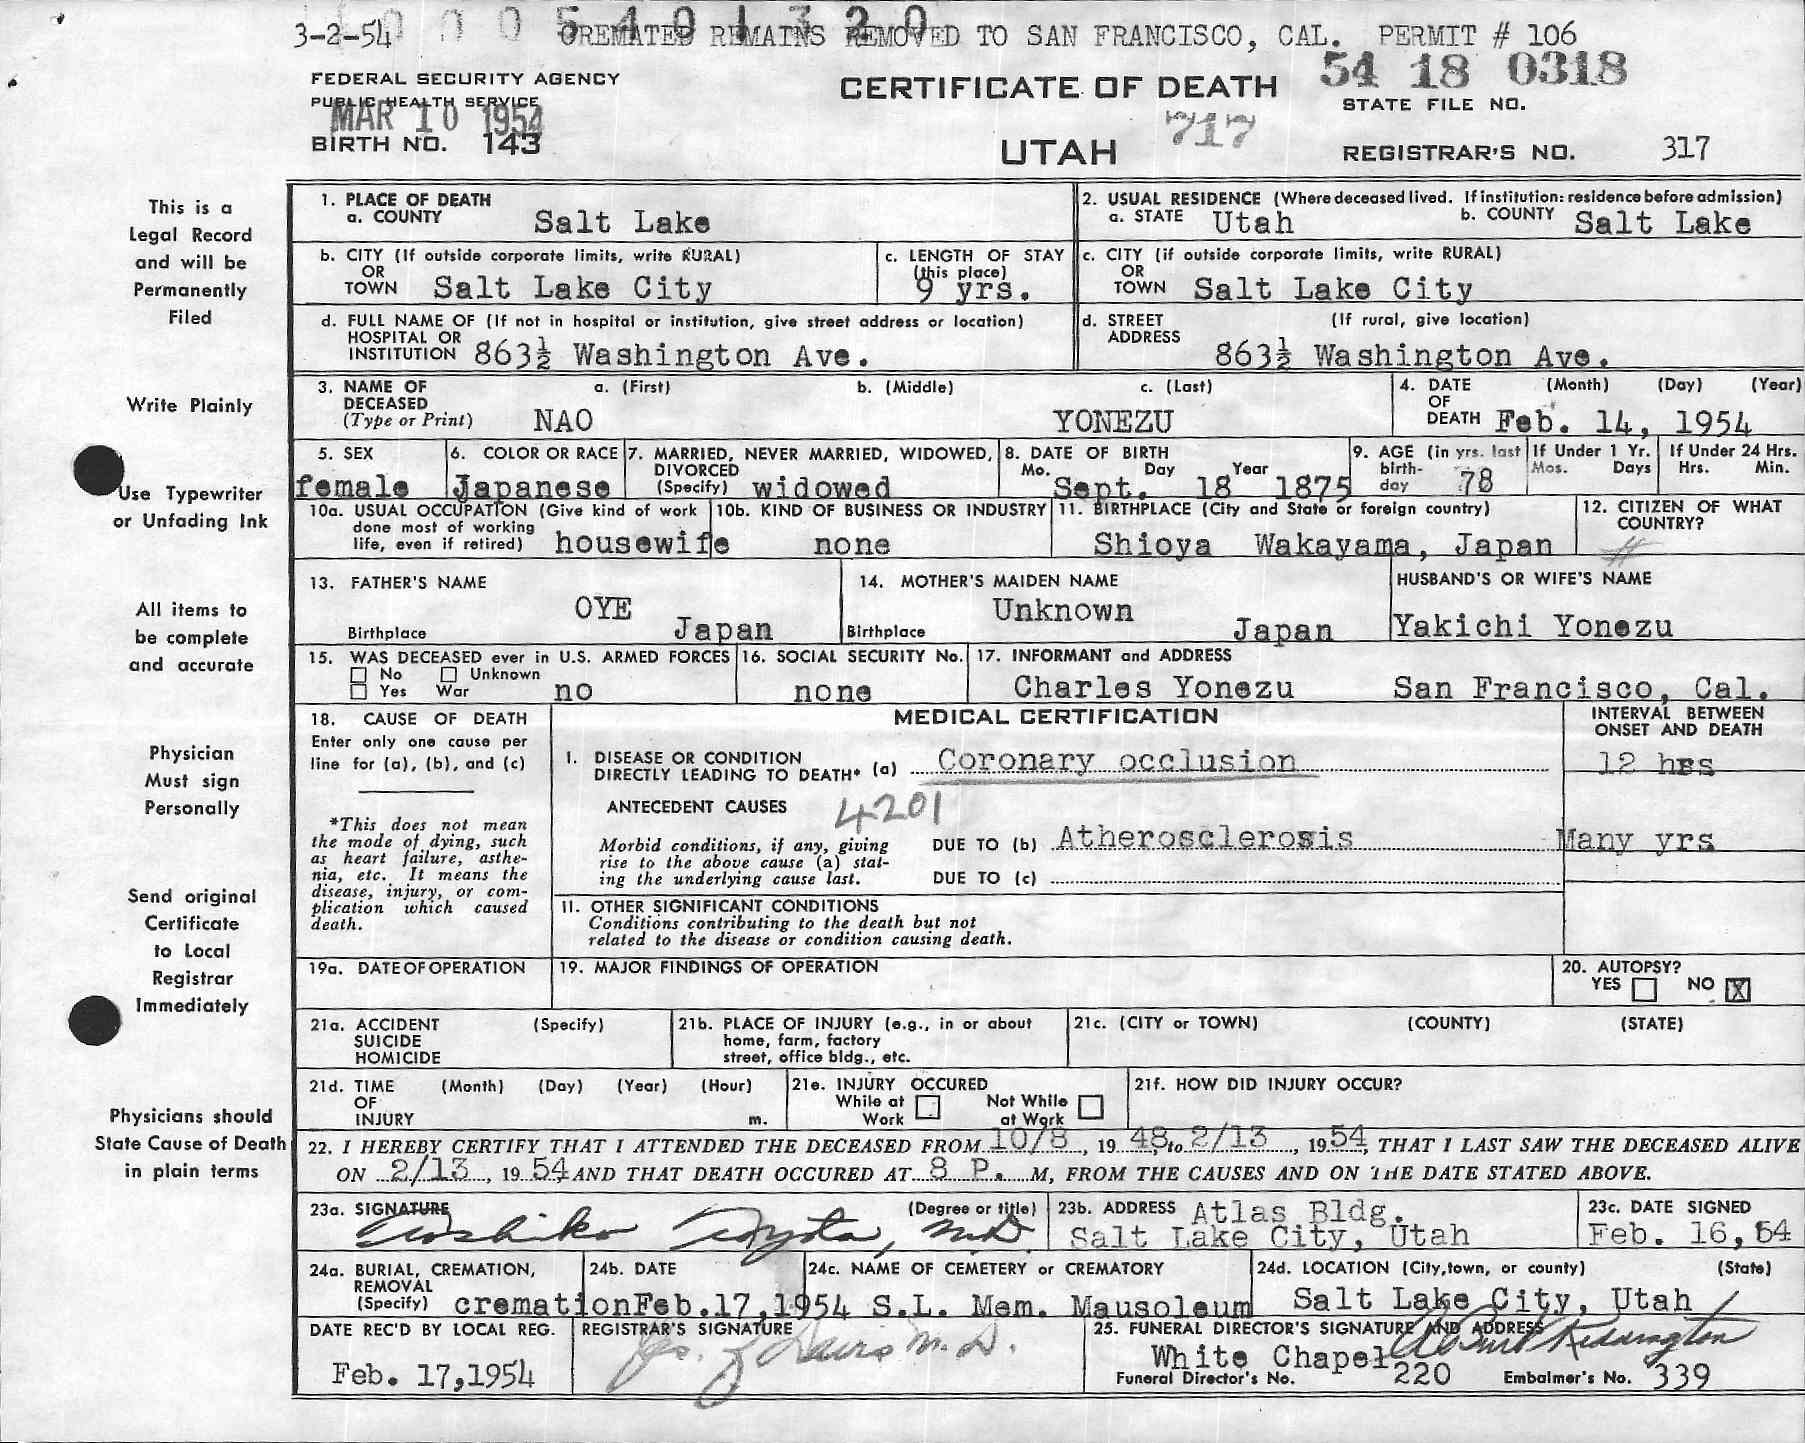 3-2-54 CREMATED REMAINS REMOVED TO SAN FRANCISCO, CAL. PERMIT # 106
FEDERAL SECURITY AGENCY
PUBLIC HEALTH SERVICE
MAR 10 1954
BIRTH NO. 143
CERTIFICATE OF DEATH
UTAH
717
54 18 0318
STATE FILE NO.
REGISTRAR'S NO. 317
This is a
Legal Record
and will be
Permanently
Filed
Write Plainly
Use Typewriter
or Unfading Ink
All items to
be complete
and accurate
Physician
Must sign
Personally
Send original
Certificate
to Local
Registrar
Immediately
Physicians should
State Cause of Death
in plain terms
1. PLACE OF DEATH
a. COUNTY Salt Lake
2. USUAL RESIDENCE (Where deceased lived. If institution: residence before admission)
a. STATE Utah b. COUNTY Salt Lake
b. CITY (If outside corporate limits, write RURAL)
OR
TOWN Salt Lake City
c. LENGTH OF STAY
(this place)
9 yrs.
c. CITY (if outside corporate limits, write RURAL)
OR
TOWN Salt Lake City
d. FULL NAME OF (If not in hospital or institution, give street address or location)
HOSPITAL OR
INSTITUTION 863½ Washington Ave.
d. STREET (If rural, give location)
ADDRESS
863½ Washington Ave.
3. NAME OF a. (First) b. (Middle) c. (Last)
DECEASED
(Type or Print) NAO YONEZU
4. DATE (Month) (Day) (Year)
OF
DEATH Feb. 14, 1954
5. SEX
female
6. COLOR OR RACE
Japanese
7. MARRIED, NEVER MARRIED, WIDOWED,
DIVORCED
(Specify) widowed
8. DATE OF BIRTH
Mo. Day Year
Sept. 18 1875
9. AGE (in yrs. last
birth-
day 78
If Under 1 Yr.
Mos. Days
If Under 24 Hrs.
Hrs. Min.
10a. USUAL OCCUPATION (Give kind of work
done most of working
life, even if retired) housewife
10b. KIND OF BUSINESS OR INDUSTRY
none
11. BIRTHPLACE (City and State or foreign country)
Shioya Wakayama, Japan
12. CITIZEN OF WHAT
COUNTRY?
13. FATHER'S NAME
OYE
Birthplace Japan
14. MOTHER'S MAIDEN NAME
Unknown
Birthplace Japan
HUSBAND'S OR WIFE'S NAME
Yakichi Yonezu
15. WAS DECEASED ever in U.S. ARMED FORCES
No Unknown
Yes War no
16. SOCIAL SECURITY No.
none
17. INFORMANT and ADDRESS
Charles Yonezu San Francisco, Cal.
18. CAUSE OF DEATH
Enter only one cause per
line for (a), (b), and (c)
*This does not mean
the mode of dying, such
as heart failure, asthe-
nia, etc. It means the
disease, injury, or com-
plication which caused
death.
MEDICAL CERTIFICATION
INTERVAL BETWEEN
ONSET AND DEATH
I. DISEASE OR CONDITION
DIRECTLY LEADING TO DEATH* (a) Coronary occlusion 12 hrs
ANTECEDENT CAUSES 4201
Morbid conditions, if any, giving
rise to the above cause (a) stat-
ing the underlying cause last.
DUE TO (b) Atherosclerosis Many yrs
DUE TO (c)
11. OTHER SIGNIFICANT CONDITIONS
Conditions contributing to the death but not
related to the disease or condition causing death.
19a. DATE OF OPERATION
19. MAJOR FINDINGS OF OPERATION
20. AUTOPSY?
YES NO X
21a. ACCIDENT (Specify)
SUICIDE
HOMICIDE
21b. PLACE OF INJURY (e.g., in or about
home, farm, factory
street, office bldg., etc.
21c. (CITY or TOWN) (COUNTY) (STATE)
21d. TIME (Month) (Day) (Year) (Hour)
OF
INJURY m.
21e. INJURY OCCURED
While at Not While
Work at Work
21f. HOW DID INJURY OCCUR?
22. I HEREBY CERTIFY THAT I ATTENDED THE DECEASED FROM 10/8, 19 48, to 2/13, 19 54, THAT I LAST SAW THE DECEASED ALIVE
ON 2/13, 19 54 AND THAT DEATH OCCURED AT 8 P. M, FROM THE CAUSES AND ON THE DATE STATED ABOVE.
23a. SIGNATURE (Degree or title)
Toshiko Toyota, M.D.
23b. ADDRESS Atlas Bldg.
Salt Lake City, Utah
23c. DATE SIGNED
Feb. 16, 54
24a. BURIAL, CREMATION,
REMOVAL
(Specify) cremation
24b. DATE
Feb.17,1954
24c. NAME OF CEMETERY or CREMATORY
S.L. Mem. Mausoleum
24d. LOCATION (City, town, or county) (State)
Salt Lake City, Utah
DATE REC'D BY LOCAL REG.
Feb. 17,1954
REGISTRAR'S SIGNATURE
M.D.
25. FUNERAL DIRECTOR'S SIGNATURE AND ADDRESS
White Chapel
Funeral Director's No. 220 Embalmer's No. 339